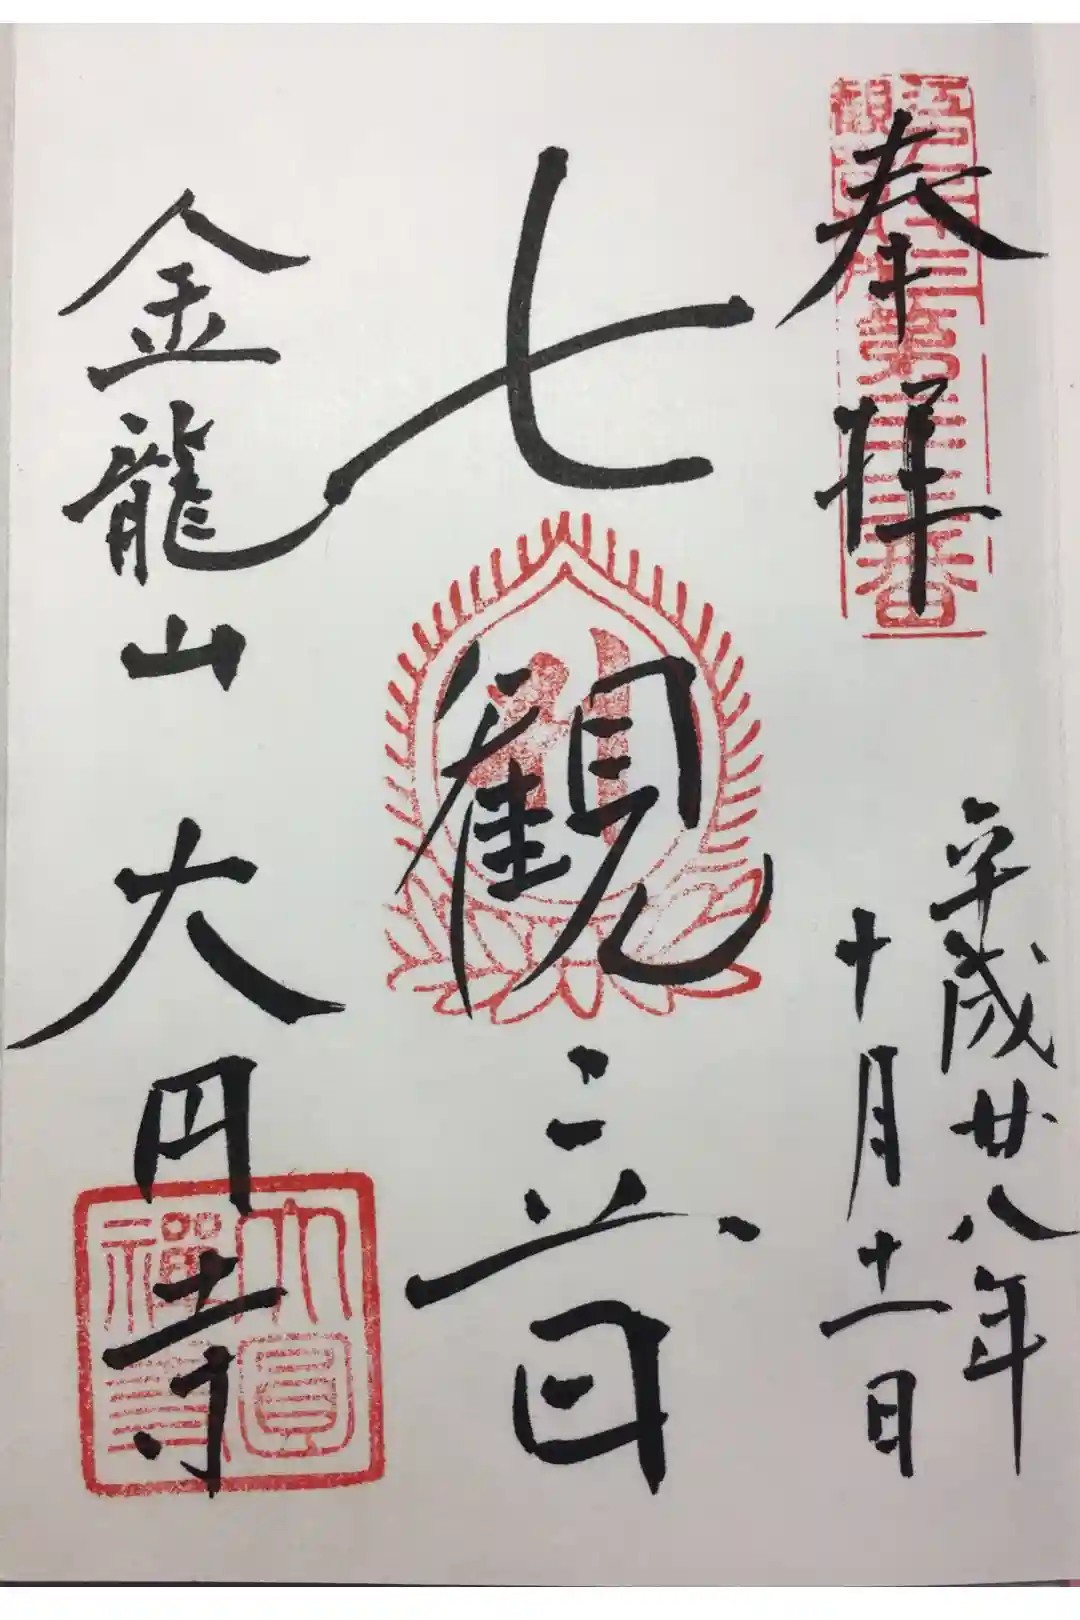 奉拝
平成廿八年
十月十一日
七観音
金龍山大円寺
大圓
禪寺